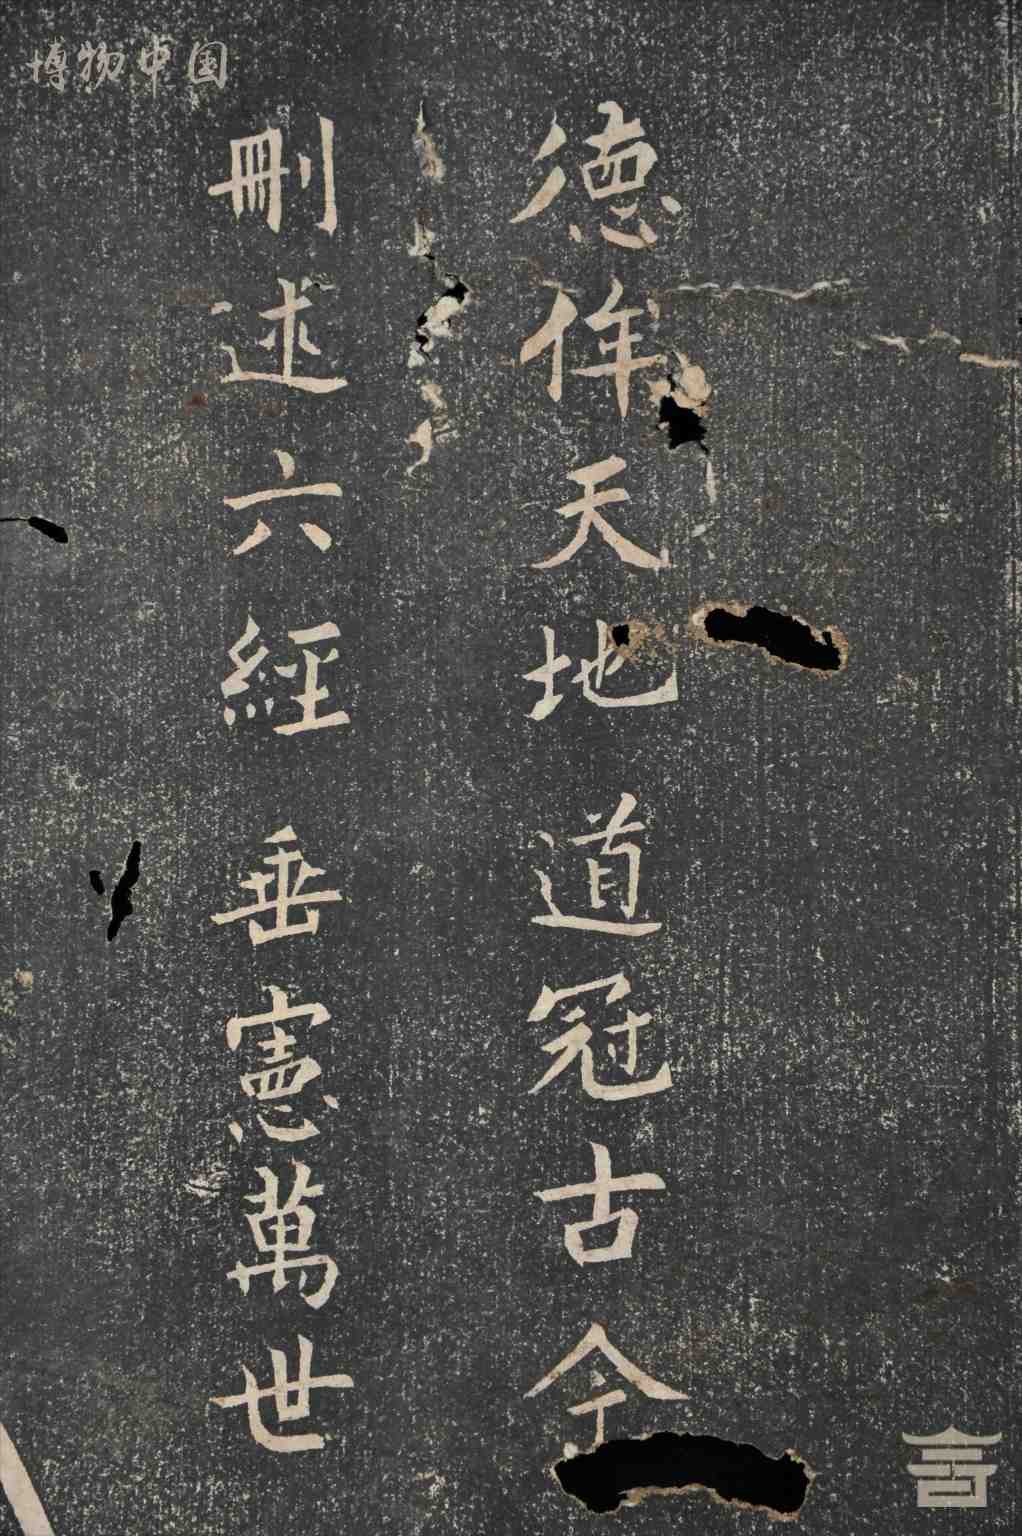 博物中国
德侔天地道冠古今
刪述六經垂憲萬世